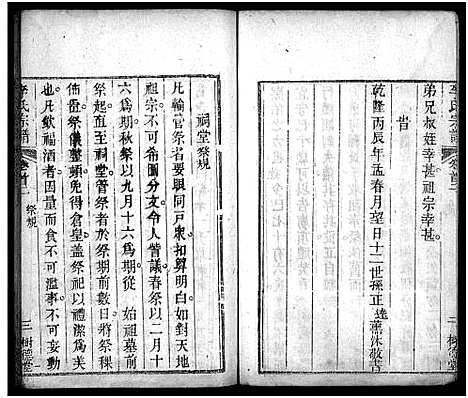 李氏宗譜
卷首二
二
樹德堂
弟兄叔姪幸甚祖宗幸甚
旹
乾隆丙辰年孟春月望日十二世孫正逵薰沐敬書
祠堂祭規
凡輪管祭者要與同戶衆扣算明白如對天地
祖宗不可希圖分文令人誚議春祭以二月十
六爲期秋祭以九月十六爲期從 始祖墓前
祭起直至祠堂管祭者於祭期前數日將祭稞
佈置整頓免得倉皇蓋祭祀以禮潔爲美
也凡飲福酒者因量而食不可濫事不可妄動
李氏宗譜
卷首二
祭規
三
樹德堂